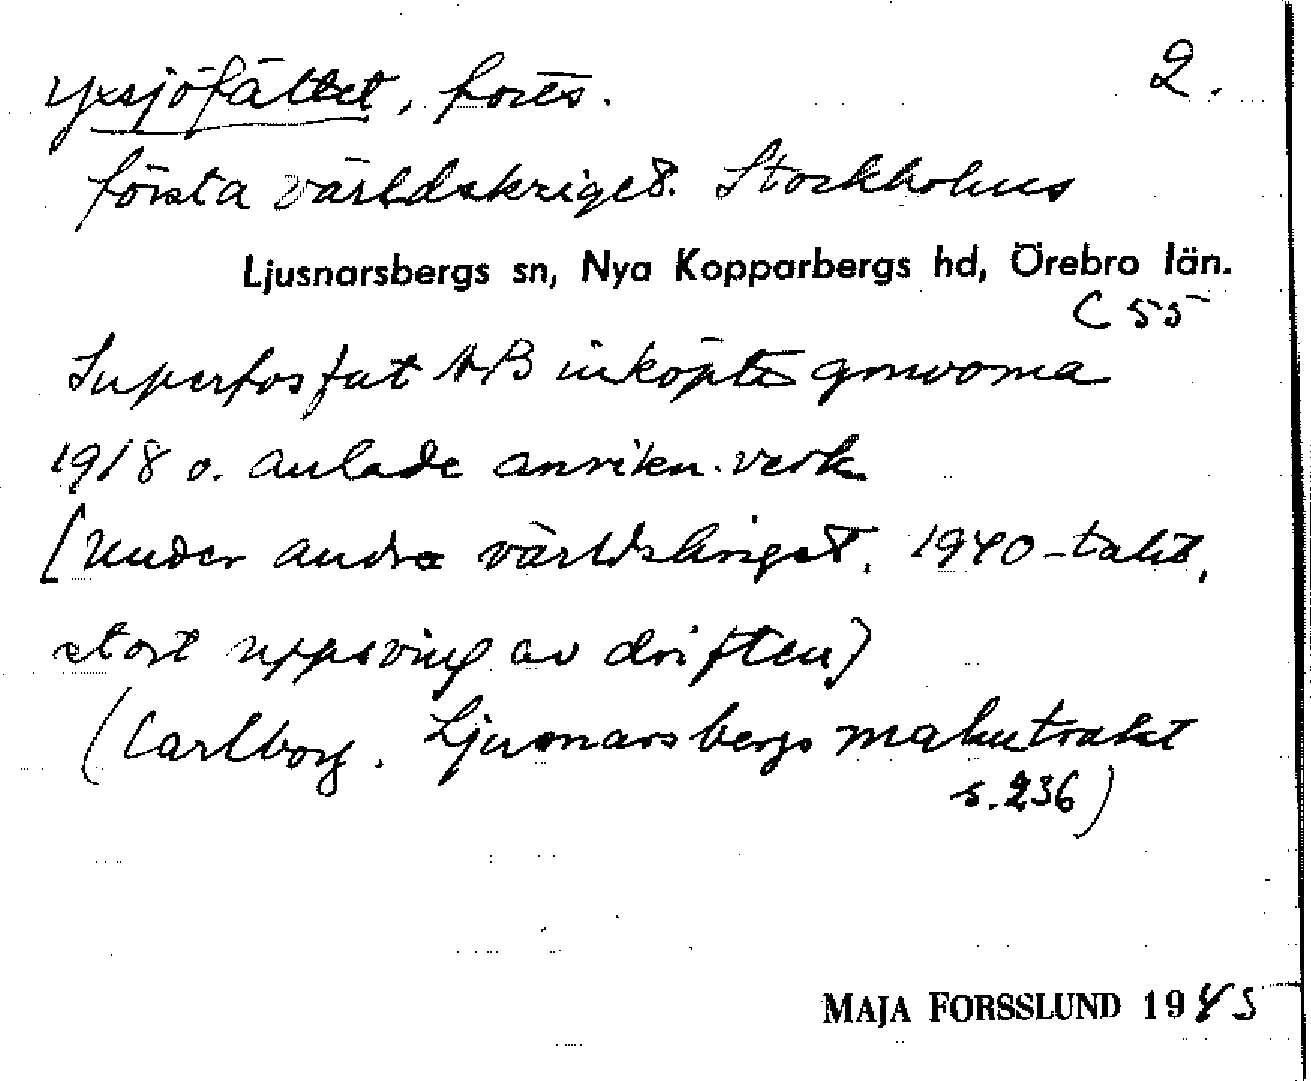 Yxsjöfältet, forts.
2.
första världskriget. Stockholms
Ljusnarsbergs sn, Nya Kopparbergs hd, Örebro län.
C 55
Superfosfat AB inköpte gruvorna
1918 o. anlade anrikn. verk
[Under andra världskriget, 1940-talet,
stort uppsving av driften]
(Carlborg. Ljusnarsbergs malmtrakt
s. 236)
MAJA FORSSLUND 1945